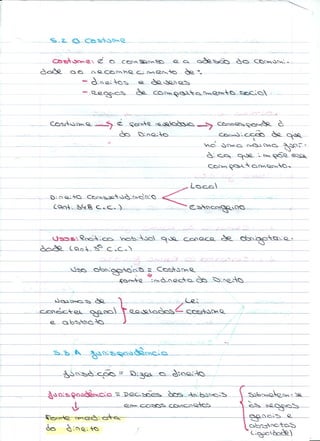 5.2 O Costume
Costume: é o consenso e a adesão da comuni-
dade ao reconhecimento de:
- direitos e deveres
- Regras de comportamento social
Costume → é fonte reveladora → corresponde à
do Direito convicção de que
há uma norma jurí-
dica que impõe esse
comportamento.
Direito Consuetudinário Local
(Art. 348 C.C.) Estrangeiro
Usos: Prática habitual que carece de obrigatorie-
dade (Art. 3º C.C.)
Uso obrigatório = Costume
fonte imediata do Direito
Normas de Lei
carácter geral reveladas costume
e abstracto
5.3 A Jurisprudência
Jurisdição = Dizer o direito
Jurisprudência = Decisões dos tribunais Submetem-se
em casos concretos às regras
Fonte mediata gerais e
do direito abstractas
(igualdade)